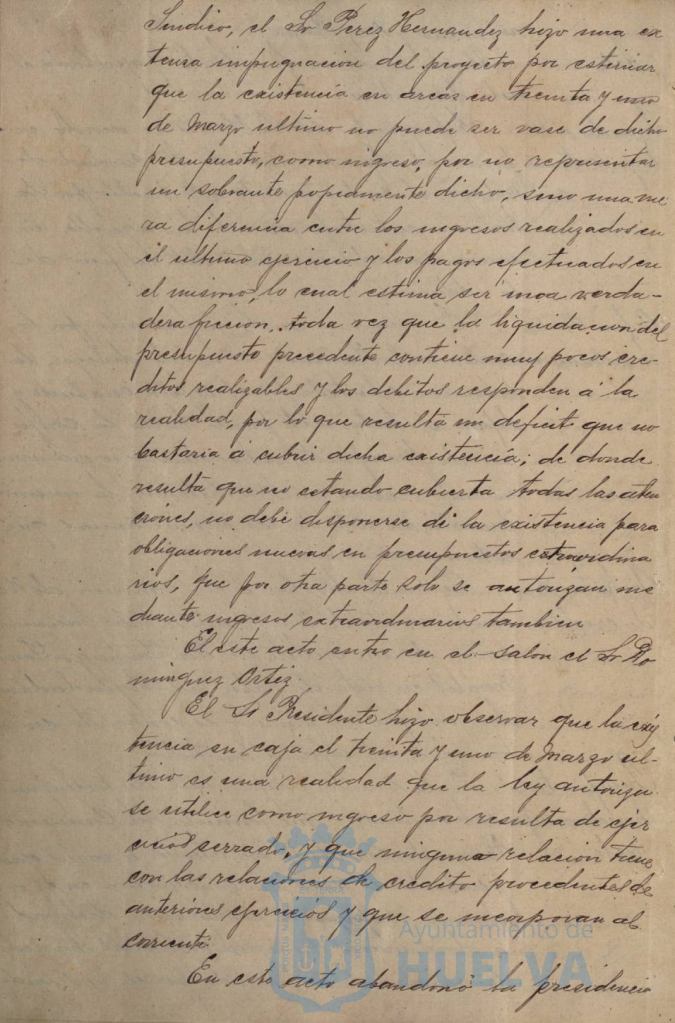 Sindico, el Sr Perez Hernandez hizo una ex
tensa impugnacion del proyecto por estimar
que la existencia en arcas en treinta y uno
de Marzo ultimo no puede ser vase de dicho
presupuesto, como ingreso, por no representar
un sobrante propiamente dicho, sino una me
ra diferencia entre los ingresos realizados en
el ultimo ejercicio y los pagos efectuados en
el mismo, lo cual estima ser una verda-
dera ficcion, toda vez que la liquidacion del
presupuesto precedente contiene muy pocos cre-
ditos realizables y los debitos responden á la
realidad, por lo que resulta un deficit que no
bastaria á cubrir dicha existencia; de donde
resulta que no estando cubierta todas las aten
ciones, no debe disponerse de la existencia para
obligaciones nuevas en presupuestos extraordina
rios, que por otra parte solo se autorizan me
diante ingresos extraordinarios tambien
El este acto entro en el salon el Sr Do
minguez Ortiz.
El Sr Presidente hizo observar que la exis
tencia en caja el treinta y uno de Marzo ul-
timo es una realidad que la ley autoriza
se utilice como ingreso por resulta de ejer
cicios serrado, y que ninguna relacion tiene
con las relaciones de credito procedentes de
anteriores ejercicios y que se incorporan al
corriente.
En este acto abandonó la presidencia
Ayuntamiento de
HUELVA